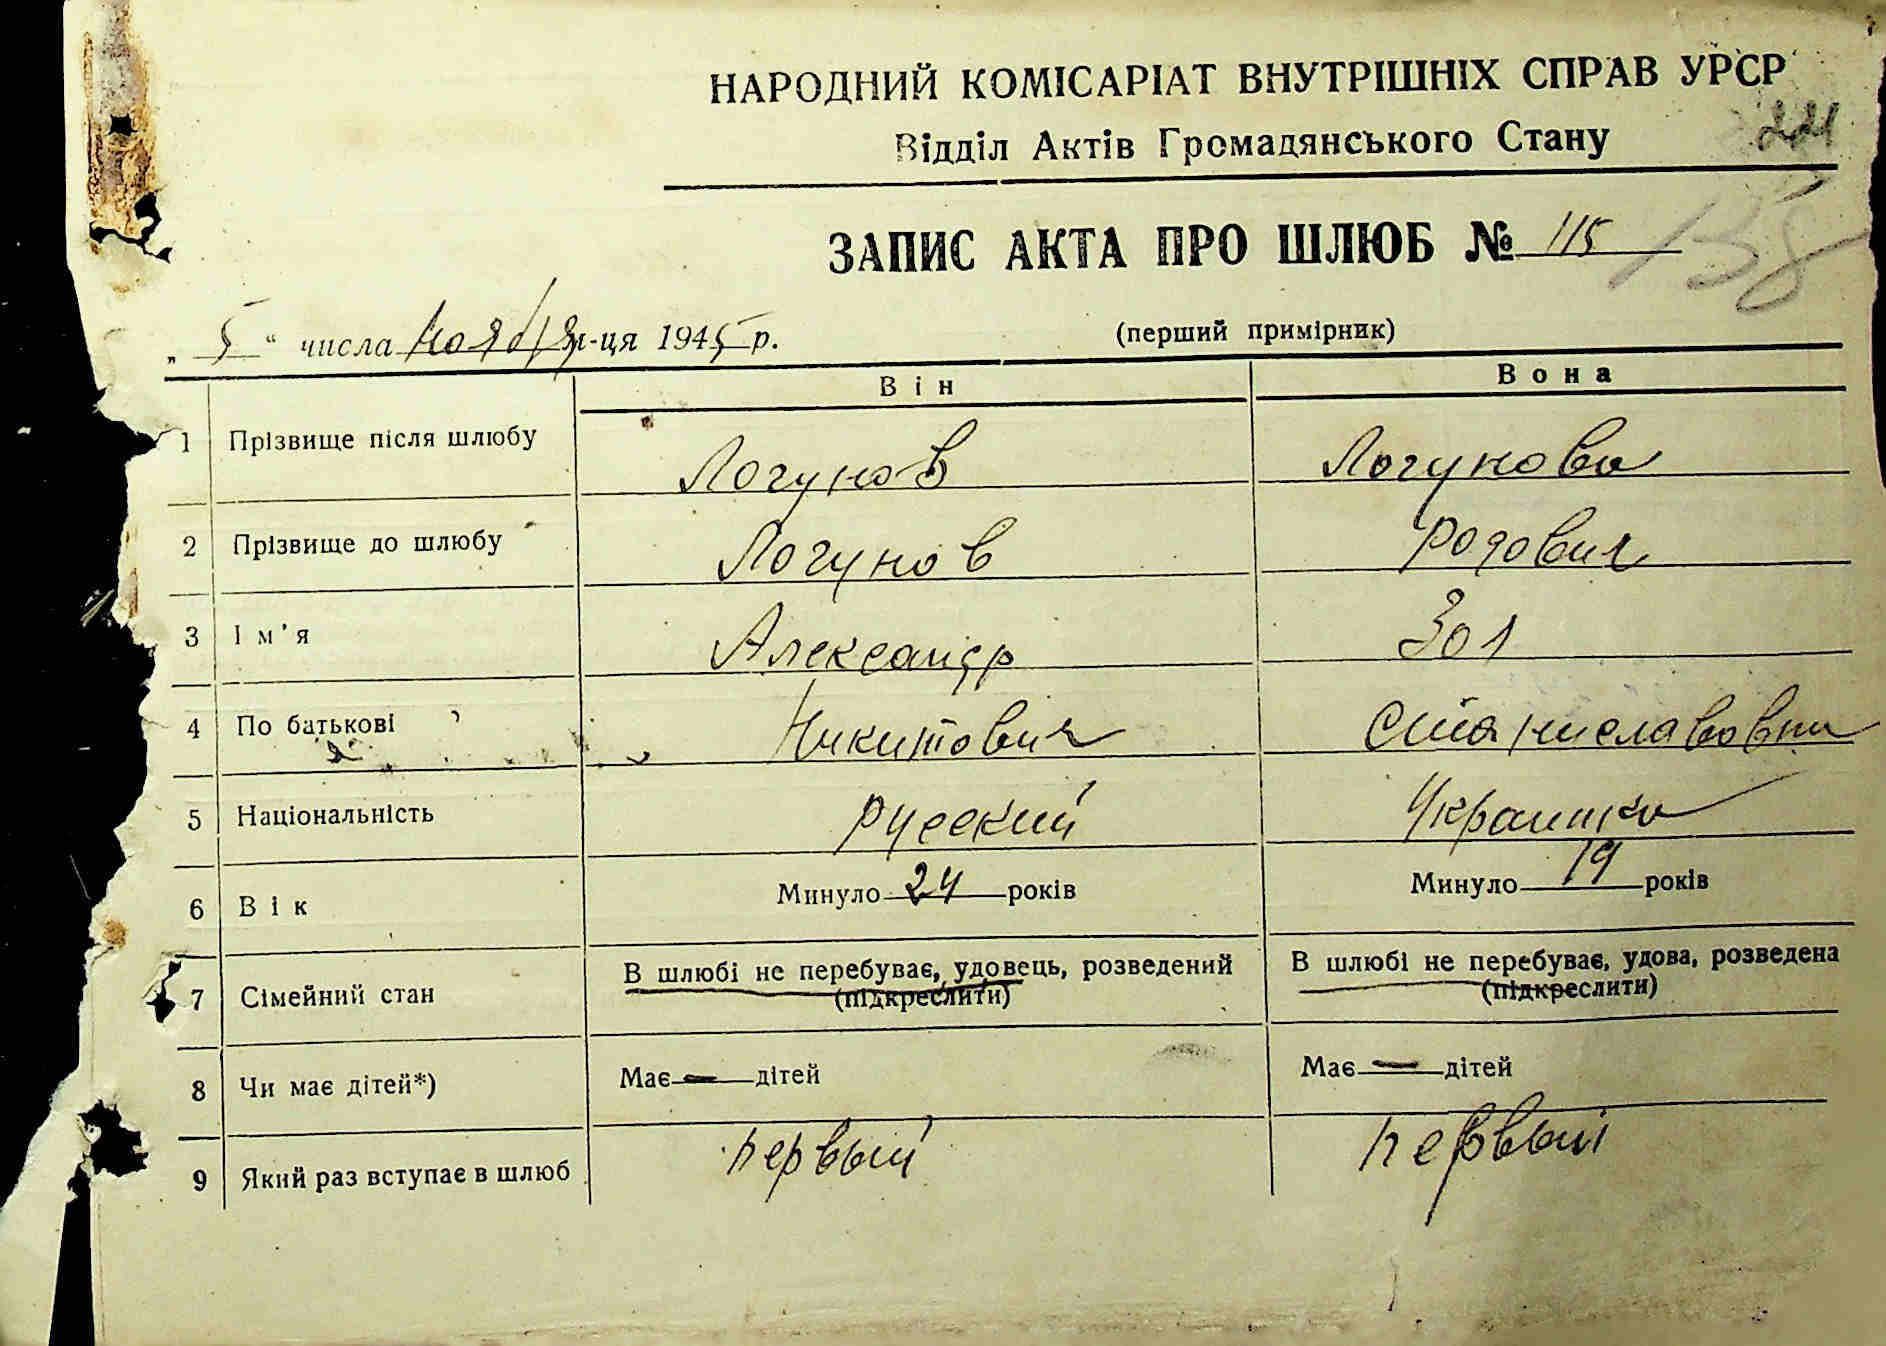 НАРОДНИЙ КОМІСАРІАТ ВНУТРІШНІХ СПРАВ УРСР
Відділ Актів Громадянського Стану
ЗАПИС АКТА ПРО ШЛЮБ № 115
138
„ 5 “ числа ноября м-ця 1945 р.
(перший примірник)
Він
Вона
1 Прізвище після шлюбу Логунов Логунова
2 Прізвище до шлюбу Логунов Родович
3 Ім'я Александр Зоя
4 По батькові Никитович Станиславовна
5 Національність русский Украинка
6 Вік Минуло 24 років Минуло 19 років
7 Сімейний стан В шлюбі не перебуває, удовець, розведений В шлюбі не перебуває, удова, розведена
(підкреслити) (підкреслити)
8 Чи має дітей*) Має — дітей Має — дітей
9 Який раз вступає в шлюб первый первый